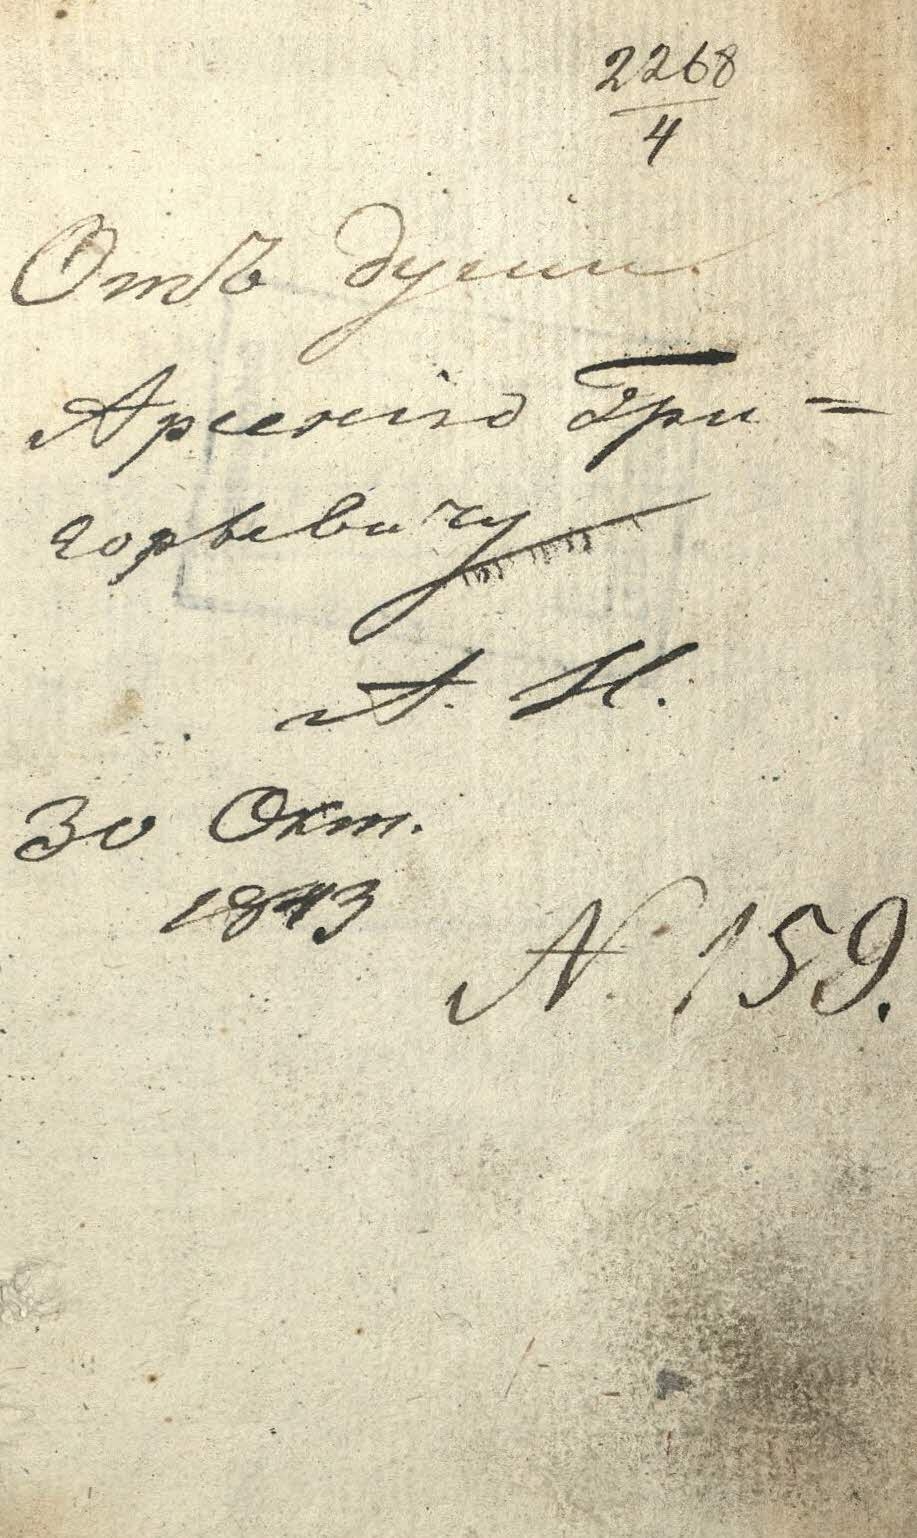 2268
4
Отъ души
Арсенію Гри=
горьевичу
А. Н.
30 Окт.
1843
N. 159.